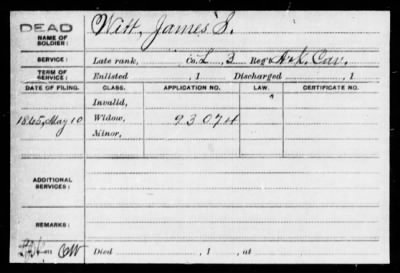 DEAD
NAME OF SOLDIER: Witt, James S.
SERVICE: Late rank, Co. L, 3 Reg't Ark. Cav.
TERM OF SERVICE: Enlisted , 1 Discharged , 1
DATE OF FILING. CLASS. APPLICATION NO. LAW. CERTIFICATE NO.
Invalid,
1865, May 10 Widow, 93074
Minor,
ADDITIONAL SERVICES:
REMARKS:
Died , 1 , at